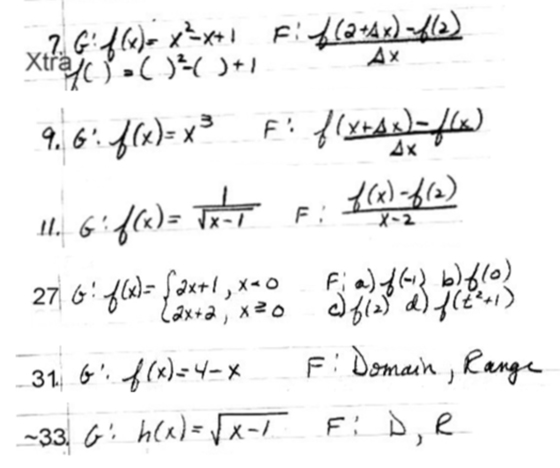 7. G: f(x) = x²-x+1 F: f(2+Δx)-f(2)/Δx
Xtra f( ) = ( )²-( )+1
9. G: f(x) = x³ F: f(x+Δx)-f(x)/Δx
11. G: f(x) = 1/√x-1 F: f(x)-f(2)/x-2
27 G: f(x) = {2x+1, x<0 F: a) f(-1) b) f(0)
2x+2, x≥0 c) f(2) d) f(t²+1)
31. G: f(x) = 4-x F: Domain, Range
~33. G: h(x) = √x-1 F: D, R